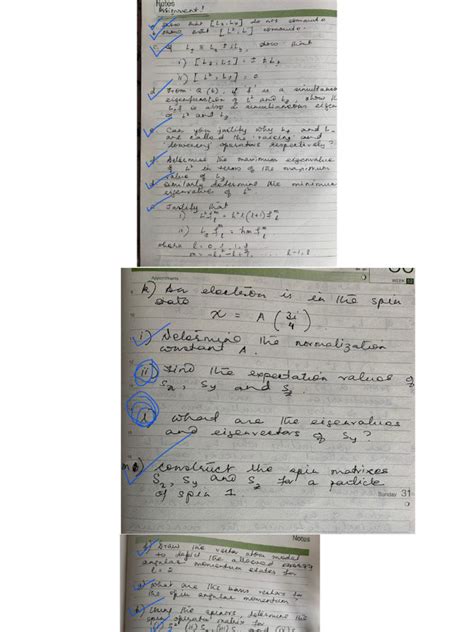 Notes
Assignment!
a. Show that [Lx, Ly] do not commute
b. Show that [L², L] commute.
c. If L± ≡ Lx ± iLy, show that
i) [Lz, L±] = ± ħL±
ii) [L², L±] = 0
d. From Q (b), if f is a simultaneous
eigenfunction of L² and Lz, show that
L±f is also a simultaneous eigen
of L² and Lz
e. Can you justify why L+ and L-
are called the raising and
lowering operators respectively?
f. Determine the maximum eigenvalue
of L² in terms of the maximum
value of Lz
Similarly determine the minimum
eigenvalue of L²
Justify that
i)
ii)
where l = 0, ½, 1, 3/2
m = -l, -l+1, ..... l-1, l
Appointments
WEEK
k) An electron is in the spin
state
X = A (3i
4)
i) Determine the normalization
constant A.
ii) Find the expectation value of
Sx, Sy and Sz
l) What are the eigenvalues
and eigenvectors of Sy?
m) Construct the spin matrixes
Sx, Sy and Sz for a particle
of spin 1.
Sunday 31
Notes
Draw the vector atom model
to depict the allowed
angular momentum states for
l = 2
What are the basis vectors for
the spin angular momentum?
Using the spinors, determine the
spin operator matrix for